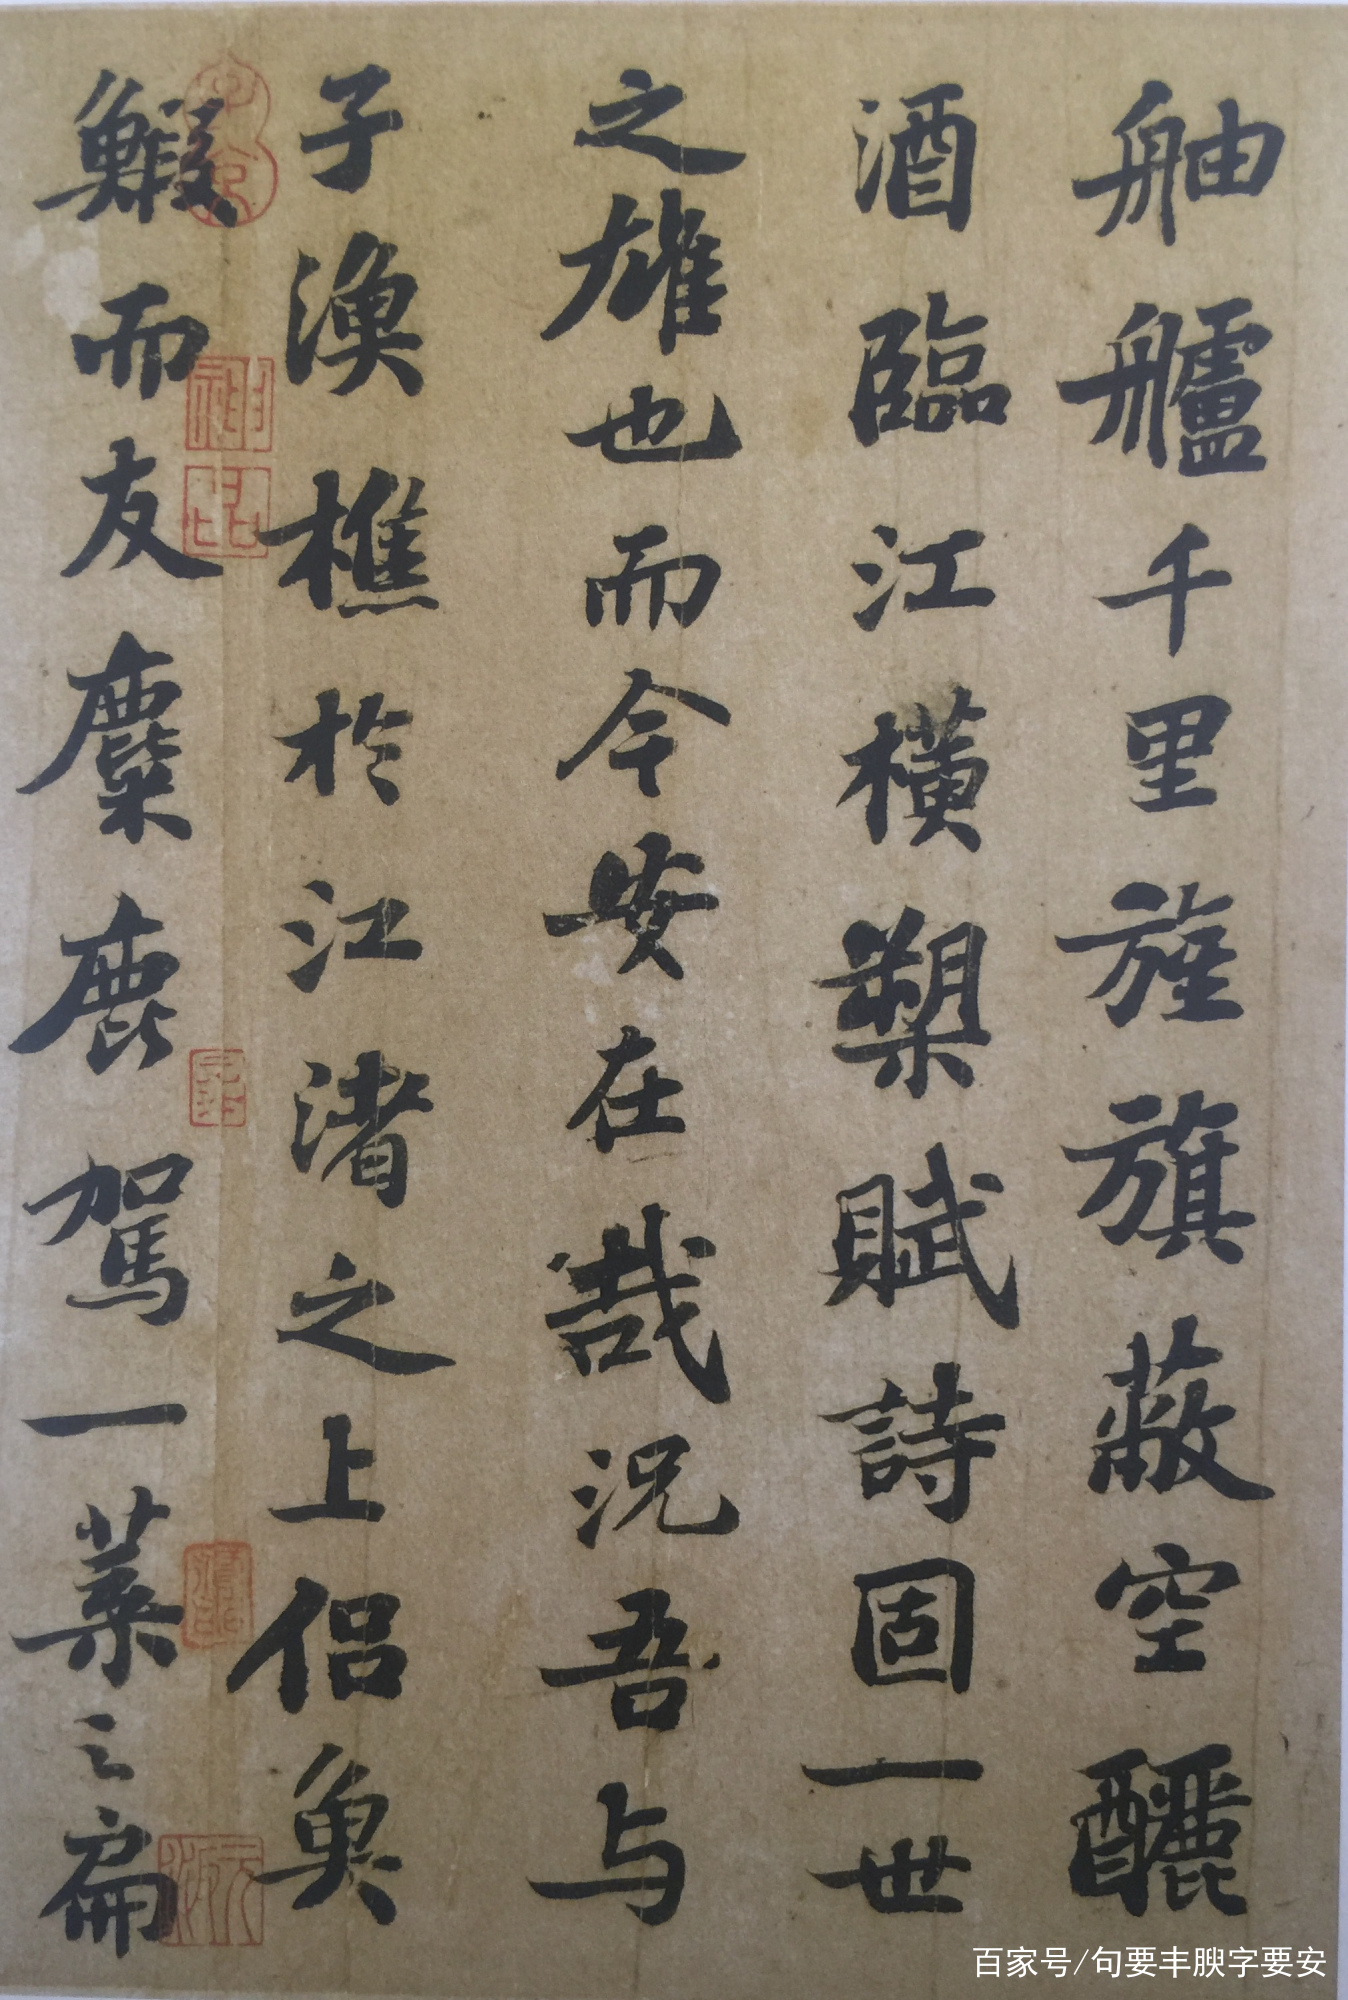 舳艫千里旌旗蔽空釃
酒臨江橫槊賦詩固一世
之雄也而今安在哉況吾与
子漁樵於江渚之上侶魚
鰕而友麋鹿駕一葉之扁
百家号/句要丰腴字要安